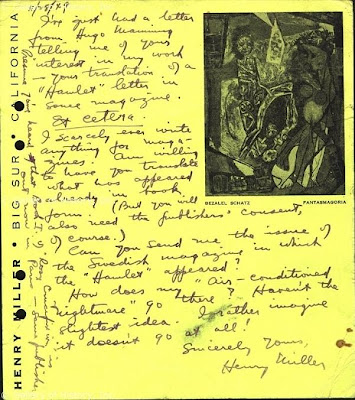 I've just had a letter
from Hugo Manning
telling me of your
interest in my work
— your translation of a
"Hamlet" letter in
some magazine.
Et cetera.
I scarcely ever write
anything for maga-
zines. Am willing
to have you translate
what has appeared
already in book
form. (But you will
also need the publishers' consent,
of course.)
Can you send me the issue of
the Swedish magazine in which
the "Hamlet" appeared?
How does my "Air-conditioned
Nightmare" go there? Haven't the
slightest idea. I rather imagine
it doesn't go at all!
Sincerely yours,
Henry Miller
BEZALEL SCHATZ
FANTASMAGORIA
HENRY MILLER • BIG SUR • CALIFORNIA
Presume you heard that